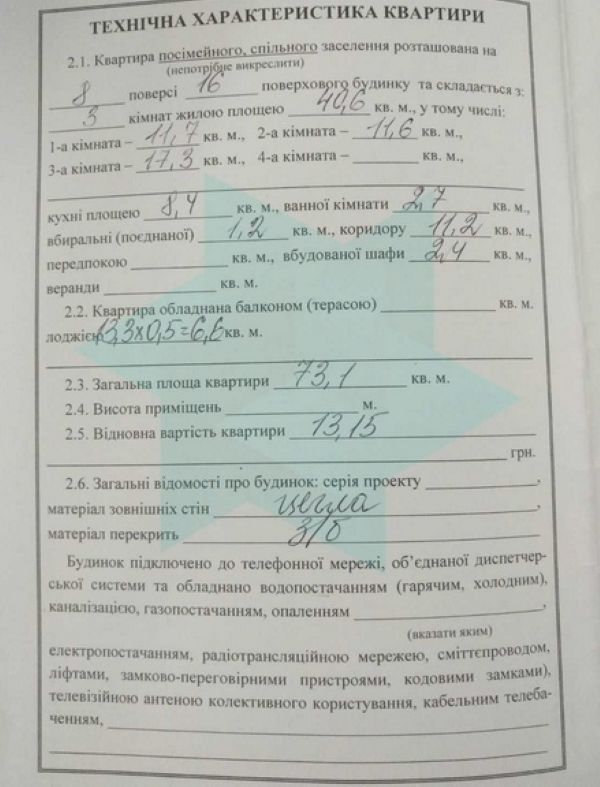 ТЕХНІЧНА ХАРАКТЕРИСТИКА КВАРТИРИ
2.1. Квартира посімейного, спільного заселення розташована на
(непотрібне викреслити)
8 поверсі 16 поверхового будинку та складається з:
3 кімнат жилою площею 40,6 кв. м., у тому числі:
1-а кімната – 11,7 кв. м., 2-а кімната – 11,6 кв. м.,
3-а кімната – 17,3 кв. м., 4-а кімната – кв. м.,
кухні площею 8,4 кв. м., ванної кімнати 2,7 кв. м.,
вбиральні (поєднаної) 1,2 кв. м., коридору 11,2 кв. м.,
передпокою кв. м., вбудованої шафи 2,4 кв. м.,
веранди кв. м.
2.2. Квартира обладнана балконом (терасою) кв. м.
лоджією 13,3x0,5=6,6 кв. м.
2.3. Загальна площа квартири 73,1 кв. м.
2.4. Висота приміщень м.
2.5. Відновна вартість квартири 13,15
грн.
2.6. Загальні відомості про будинок: серія проекту ,
матеріал зовнішніх стін цегла ,
матеріал перекрить з/б
Будинок підключено до телефонної мережі, об’єднаної диспетчер-
ської системи та обладнано водопостачанням (гарячим, холодним),
каналізацією, газопостачанням, опаленням ,
(вказати яким)
електропостачанням, радіотрансляційною мережею, сміттєпроводом,
ліфтами, замково-переговірними пристроями, кодовими замками),
телевізійною антеною колективного користування, кабельним телеба-
ченням,